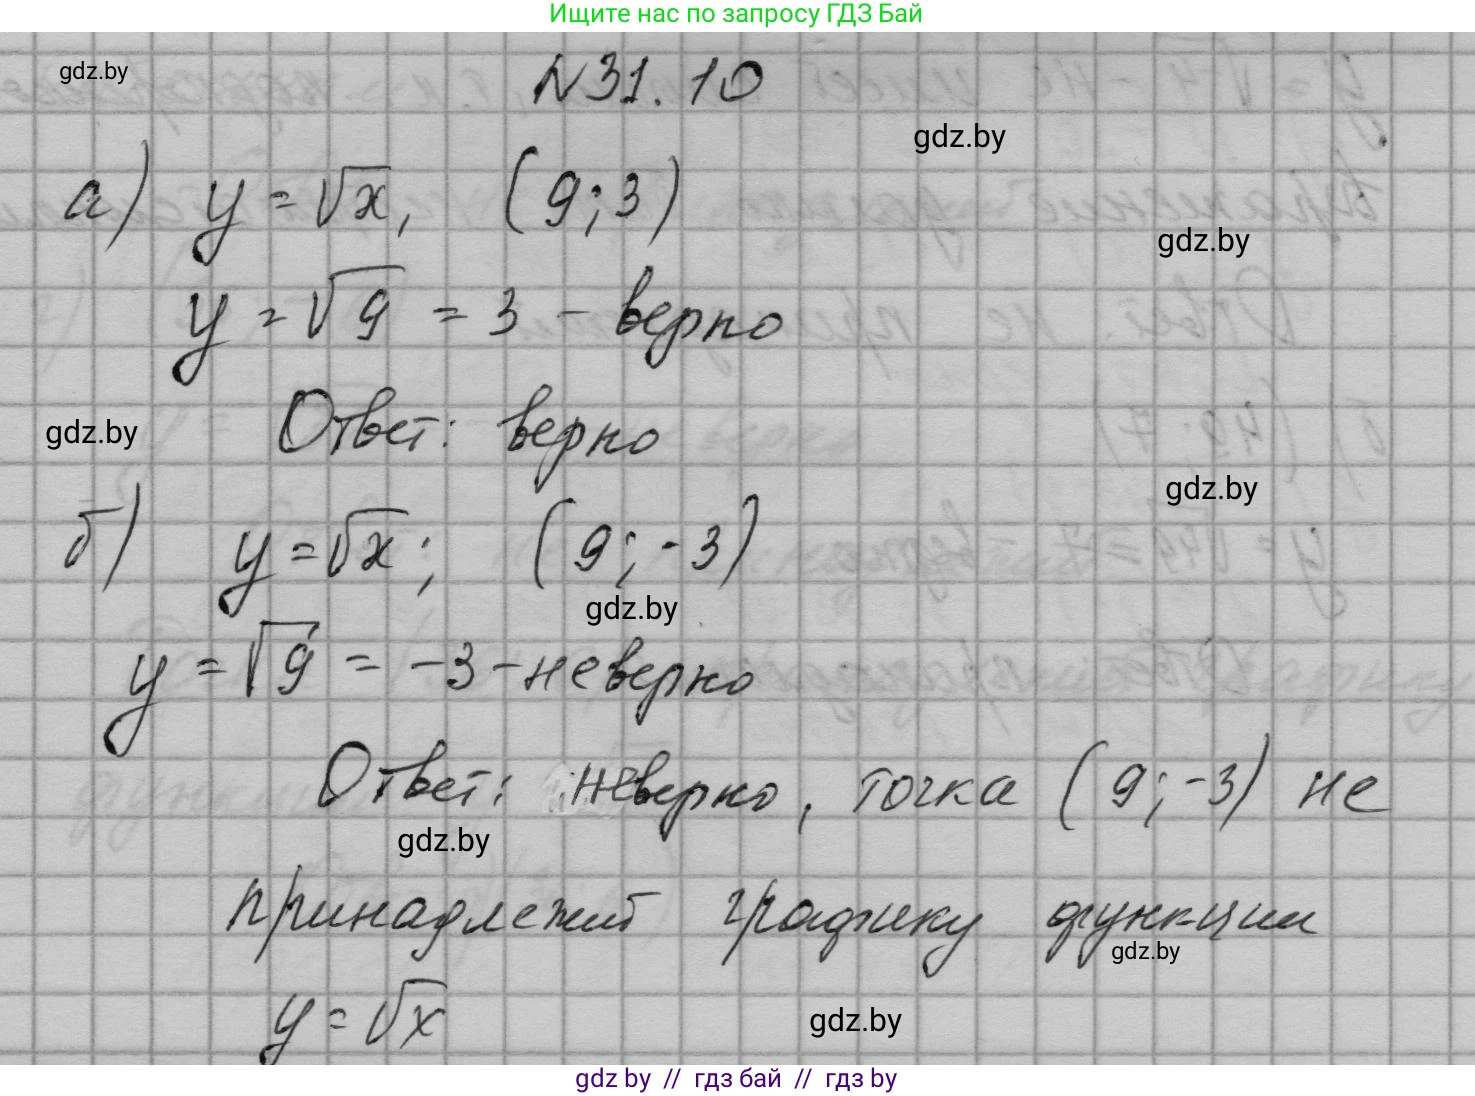 Ищите нас по запросу ГДЗ Бай
gdz.by
N31.10
gdz.by
а) y = √x, (9; 3)
gdz.by
y = √9 = 3 - верно
gdz.by
Ответ: верно
gdz.by
б) y = √x; (9; -3)
gdz.by
y = √9 = -3 - неверно
Ответ: неверно, точка (9; -3) не
gdz.by
принадлежит графику функции
gdz.by
y = √x
gdz.by
gdz by // гдз бай // гдз by